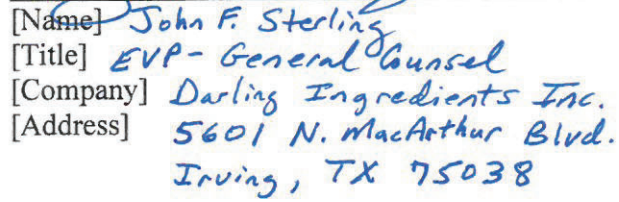 [Name] John F. Sterling
[Title] EVP - General Counsel
[Company] Darling Ingredients Inc.
[Address] 5601 N. MacArthur Blvd.
Irving, TX 75038